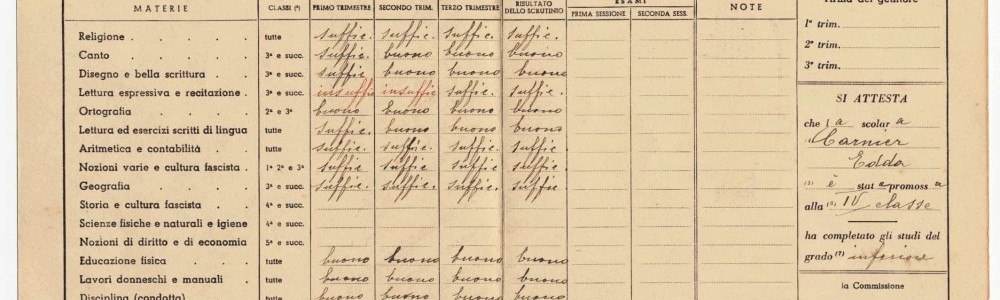 MATERIE CLASSI (*) PRIMO TRIMESTRE SECONDO TRIM. TERZO TRIMESTRE RISULTATO DELLO SCRUTINIO ESAMI PRIMA SESSIONE SECONDA SESS. NOTE
Religione . . . . . tutte suffic. suffic. suffic. suffic.
Canto . . . . . 3ª e succ. suffic. buono buono buono
Disegno e bella scrittura . . 3ª e succ. suffic. buono buono buono
Lettura espressiva e recitazione . 3ª e succ. insuffic insuffic suffic. suffic.
Ortografia . . . . 2ª e 3ª buono buono buono buono
Lettura ed esercizi scritti di lingua tutte suffic. buono buono buono
Aritmetica e contabilità . . tutte suffic. suffic. suffic. suffic.
Nozioni varie e cultura fascista . 1ª 2ª e 3ª suffic suffic suffic suffic
Geografia . . . . 3ª e succ. suffic. suffic. suffic. suffic.
Storia e cultura fascista . . 4ª e succ.
Scienze fisiche e naturali e igiene 4ª e succ.
Nozioni di diritto e di economia 5ª e succ.
Educazione fisica . . . tutte buono buono buono buono
Lavori donneschi e manuali . tutte buono buono buono buono
Disciplina (condotta) tutte buono buono buono buono
Firma del genitore
1° trim.
2° trim.
3° trim.
SI ATTESTA
che l a scolar a
Carnier
Edda
è stat a promoss a
alla IV classe
ha completato gli studi del
grado inferiore
la Commissione